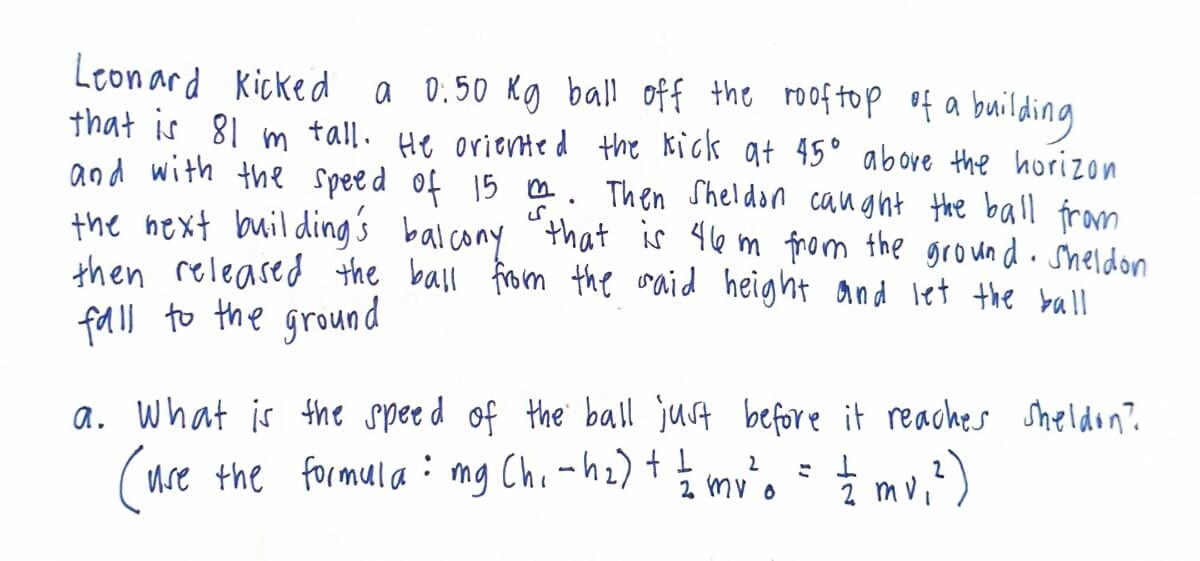 Leonard kicked a 0.50 Kg ball off the rooftop of a building
that is 81 m tall. He oriented the kick at 45° above the horizon
and with the speed of 15 m/s. Then Sheldon caught the ball from
the next building's balcony that is 46 m from the ground. Sheldon
then released the ball from the said height and let the ball
fall to the ground
a. What is the speed of the ball just before it reaches Sheldon?
(use the formula: mg (h₁ - h₂) + 1/2 mv²₀ = 1/2 mv₁²)